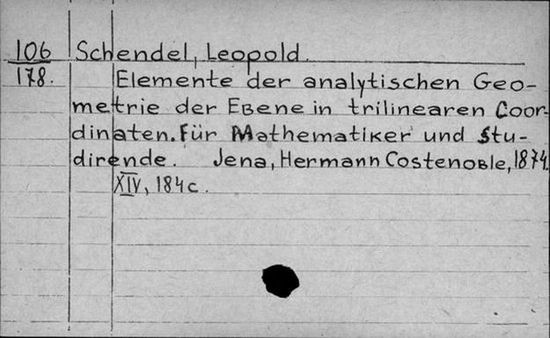 106 Schendel, Leopold.
178. Elemente der analytischen Geo-
metrie der Ebene in trilinearen Coor-
dinaten. Für Mathematiker und Stu-
dirende. Jena, Hermann Costenoble, 1874.
XIV, 184 c.